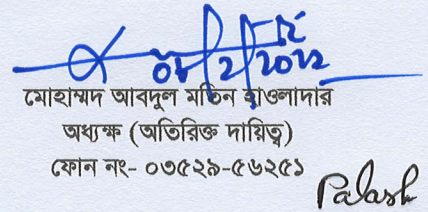 ০৮/২/২০২২
মোহাম্মদ আবদুল মতিন হাওলাদার
অধ্যক্ষ (অতিরিক্ত দায়িত্ব)
ফোন নং- ০৩৫২৯-৫৬২৫১
Palash